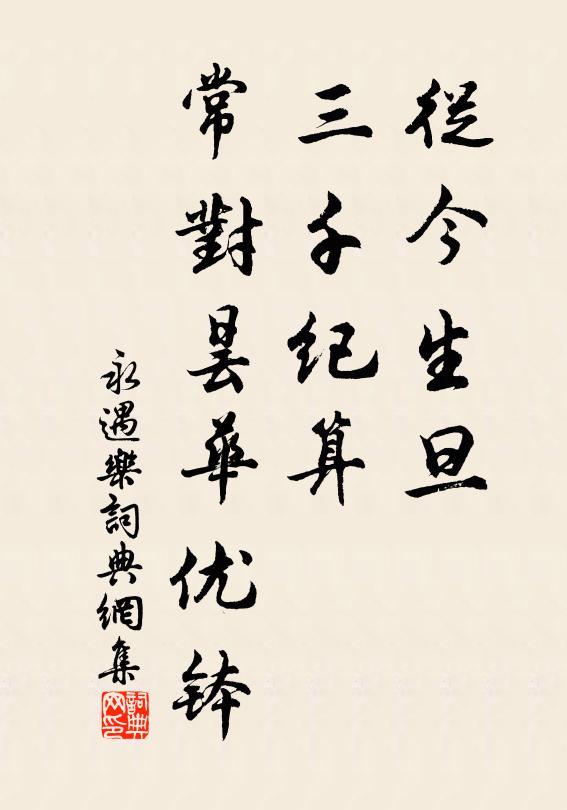 從今生旦
三千纪算
常對昙華优钵
永遇樂詞典網集
詞典网印